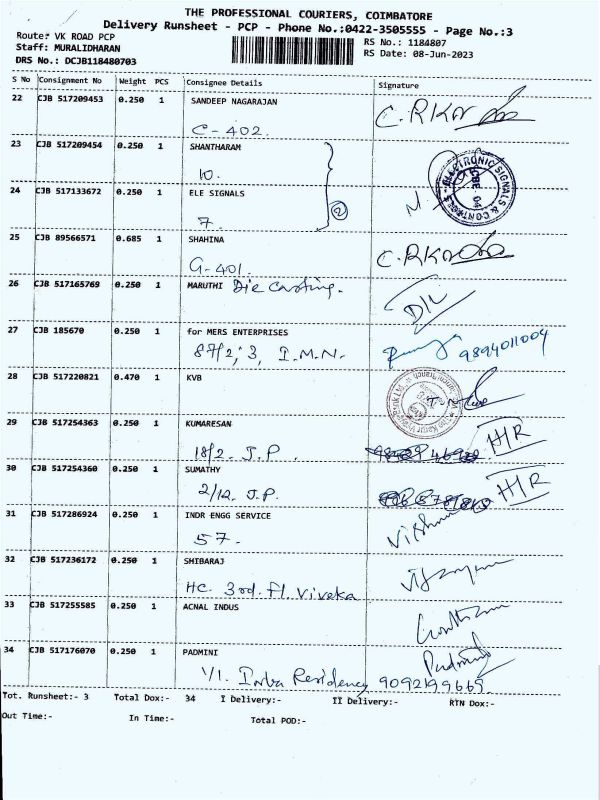 THE PROFESSIONAL COURIERS, COIMBATORE
Delivery Runsheet - PCP - Phone No.:0422-3505555 - Page No.:3
Route: VK ROAD PCP
RS No.: 1184807
Staff: MURALIDHARAN
RS Date: 08-Jun-2023
DRS No.: DCJB118480703
S No Consignment No Weight PCS Consignee Details Signature
22 CJB 517209453 0.250 1 SANDEEP NAGARAJAN
C-402.
23 CJB 517209454 0.250 1 SHANTHARAM
10.
24 CJB 517133672 0.250 1 ELE SIGNALS
7. 2
ELECTRONIC SIGNALS & CONTROLS
25 CJB 89566571 0.685 1 SHAHINA
G-401.
26 CJB 517165769 0.250 1 MARUTHI Die Casting.
D/L
27 CJB 185670 0.250 1 for MERS ENTERPRISES
87/2, 3, I.M.N. 9894011004
28 CJB 517220821 0.470 1 KVB
29 CJB 517254363 0.250 1 KUMARESAN
18/2. J.P. H/R
30 CJB 517254360 0.250 1 SUMATHY
2/12. J.P. H/R
31 CJB 517286924 0.250 1 INDR ENGG SERVICE
57.
32 CJB 517236172 0.250 1 SHIBARAJ
HC. 3rd. Fl. Viveka
33 CJB 517255585 0.250 1 ACNAL INDUS
34 CJB 517176070 0.250 1 PADMINI
Padmini
1/1. Inba Residency 9092199669.
Tot. Runsheet:- 3 Total Dox:- 34 I Delivery:- II Delivery:- RTN Dox:-
Out Time:- In Time:- Total POD:-